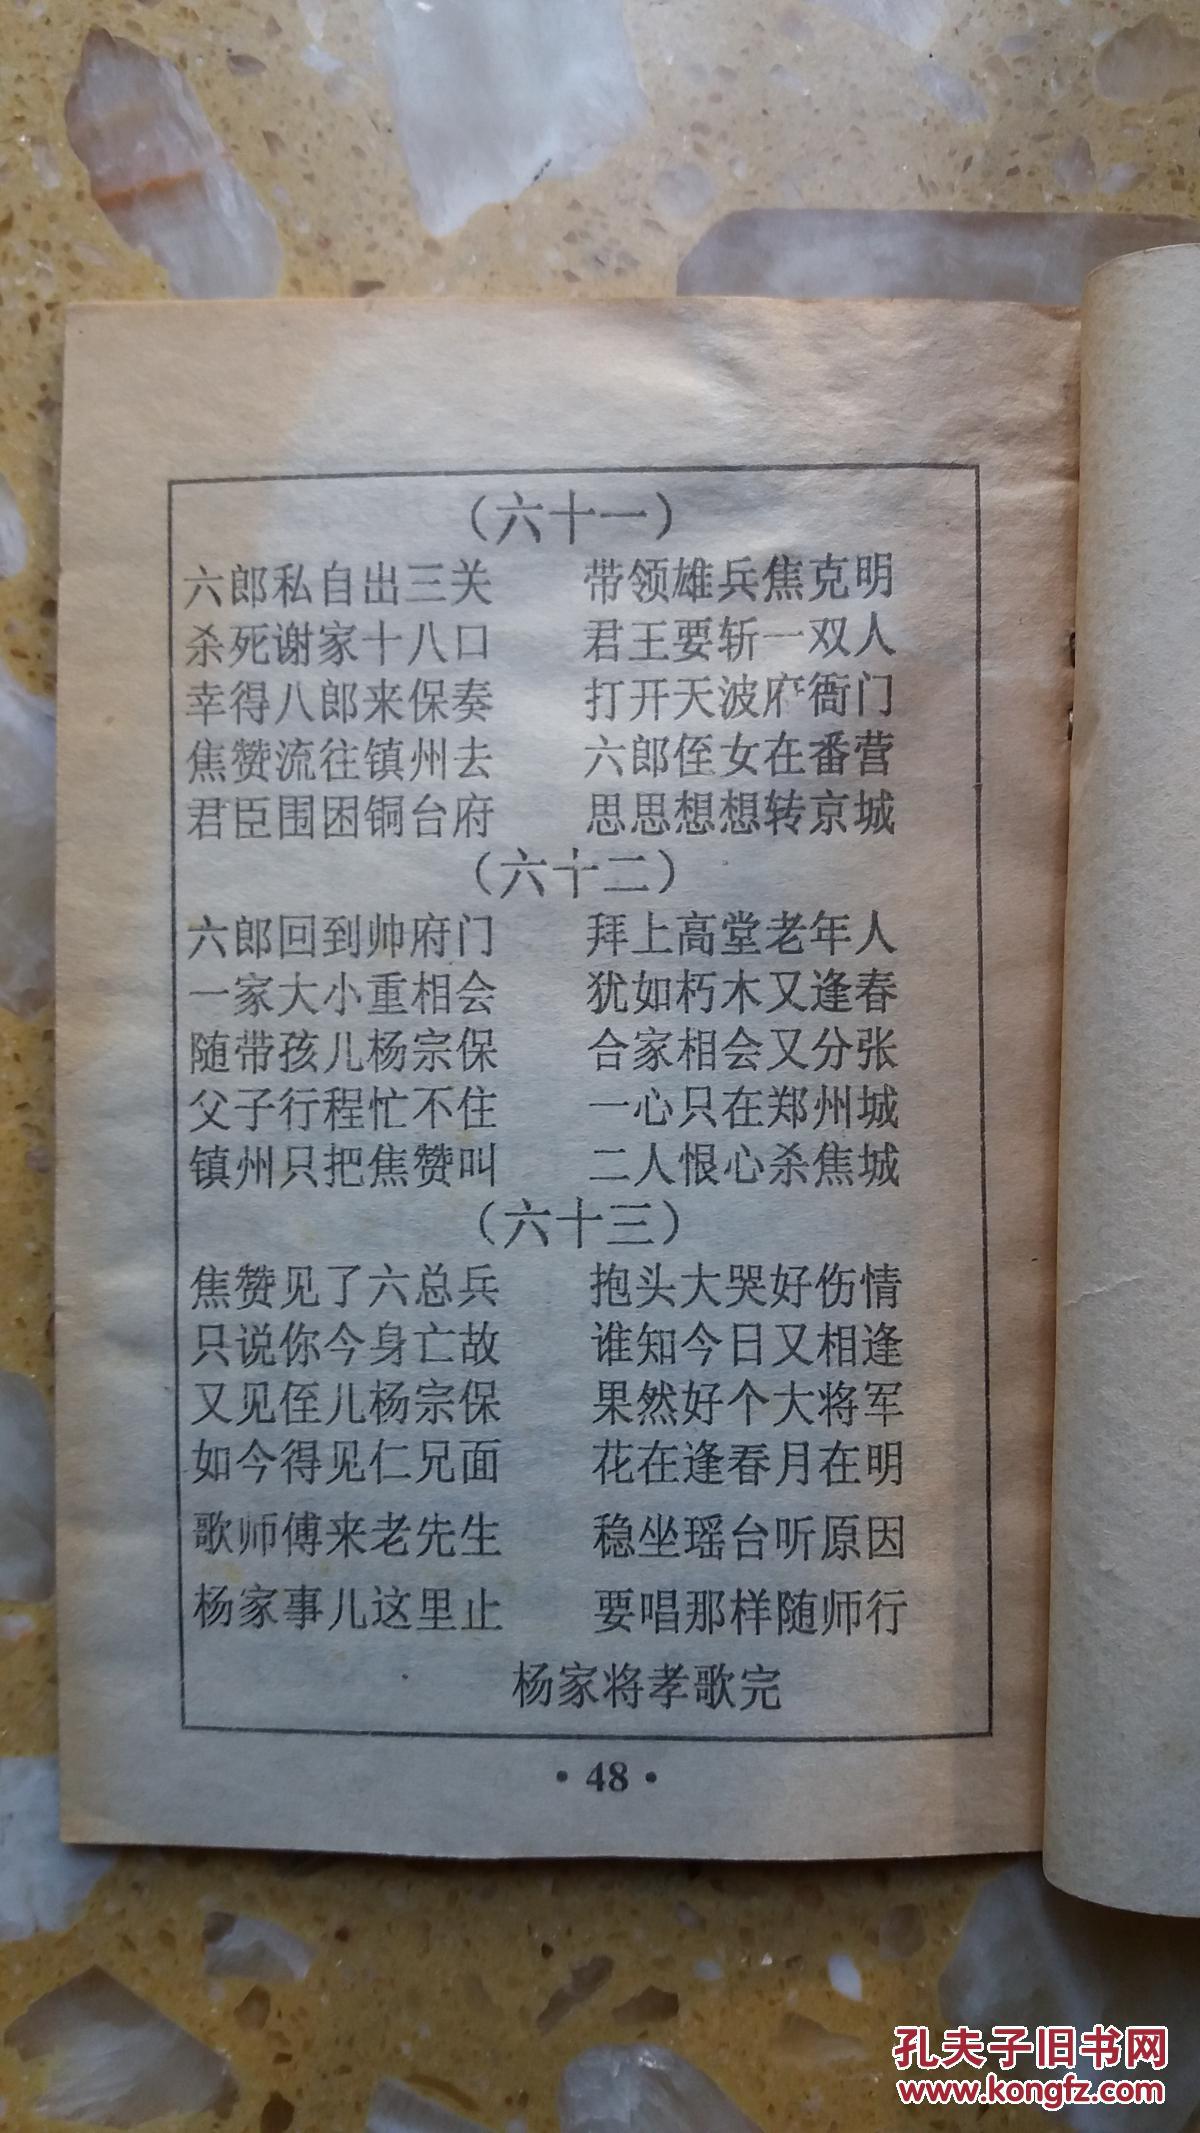 （六十一）
六郎私自出三关 带领雄兵焦克明
杀死谢家十八口 君王要斩一双人
幸得八郎来保奏 打开天波府衙门
焦赞流往镇州去 六郎侄女在番营
君臣围困铜台府 思思想想转京城
（六十二）
六郎回到帅府门 拜上高堂老年人
一家大小重相会 犹如朽木又逢春
随带孩儿杨宗保 合家相会又分张
父子行程忙不住 一心只在郑州城
镇州只把焦赞叫 二人恨心杀焦城
（六十三）
焦赞见了六总兵 抱头大哭好伤情
只说你今身亡故 谁知今日又相逢
又见侄儿杨宗保 果然好个大将军
如今得见仁兄面 花在逢春月在明
歌师傅来老先生 稳坐瑶台听原因
杨家事儿这里止 要唱那样随师行
杨家将孝歌完
·48·
孔夫子旧书网
www.kongfz.com